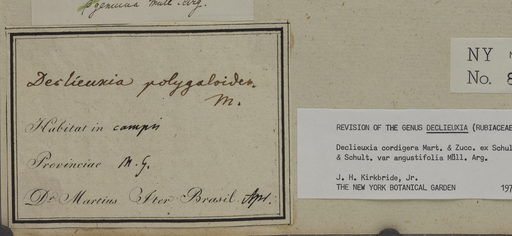 genuina Müll. Arg.
Declieuxia polygaloides.
M.
Habitat in campis
Provinciae M. G.
Dr Martius Iter Brasil. Apr.
NY
No.
REVISION OF THE GENUS DECLIEUXIA (RUBIACEAE
Declieuxia cordigera Mart. & Zucc. ex Schul
& Schult. var angustifolia Müll. Arg.
J. H. Kirkbride, Jr.
THE NEW YORK BOTANICAL GARDEN 197